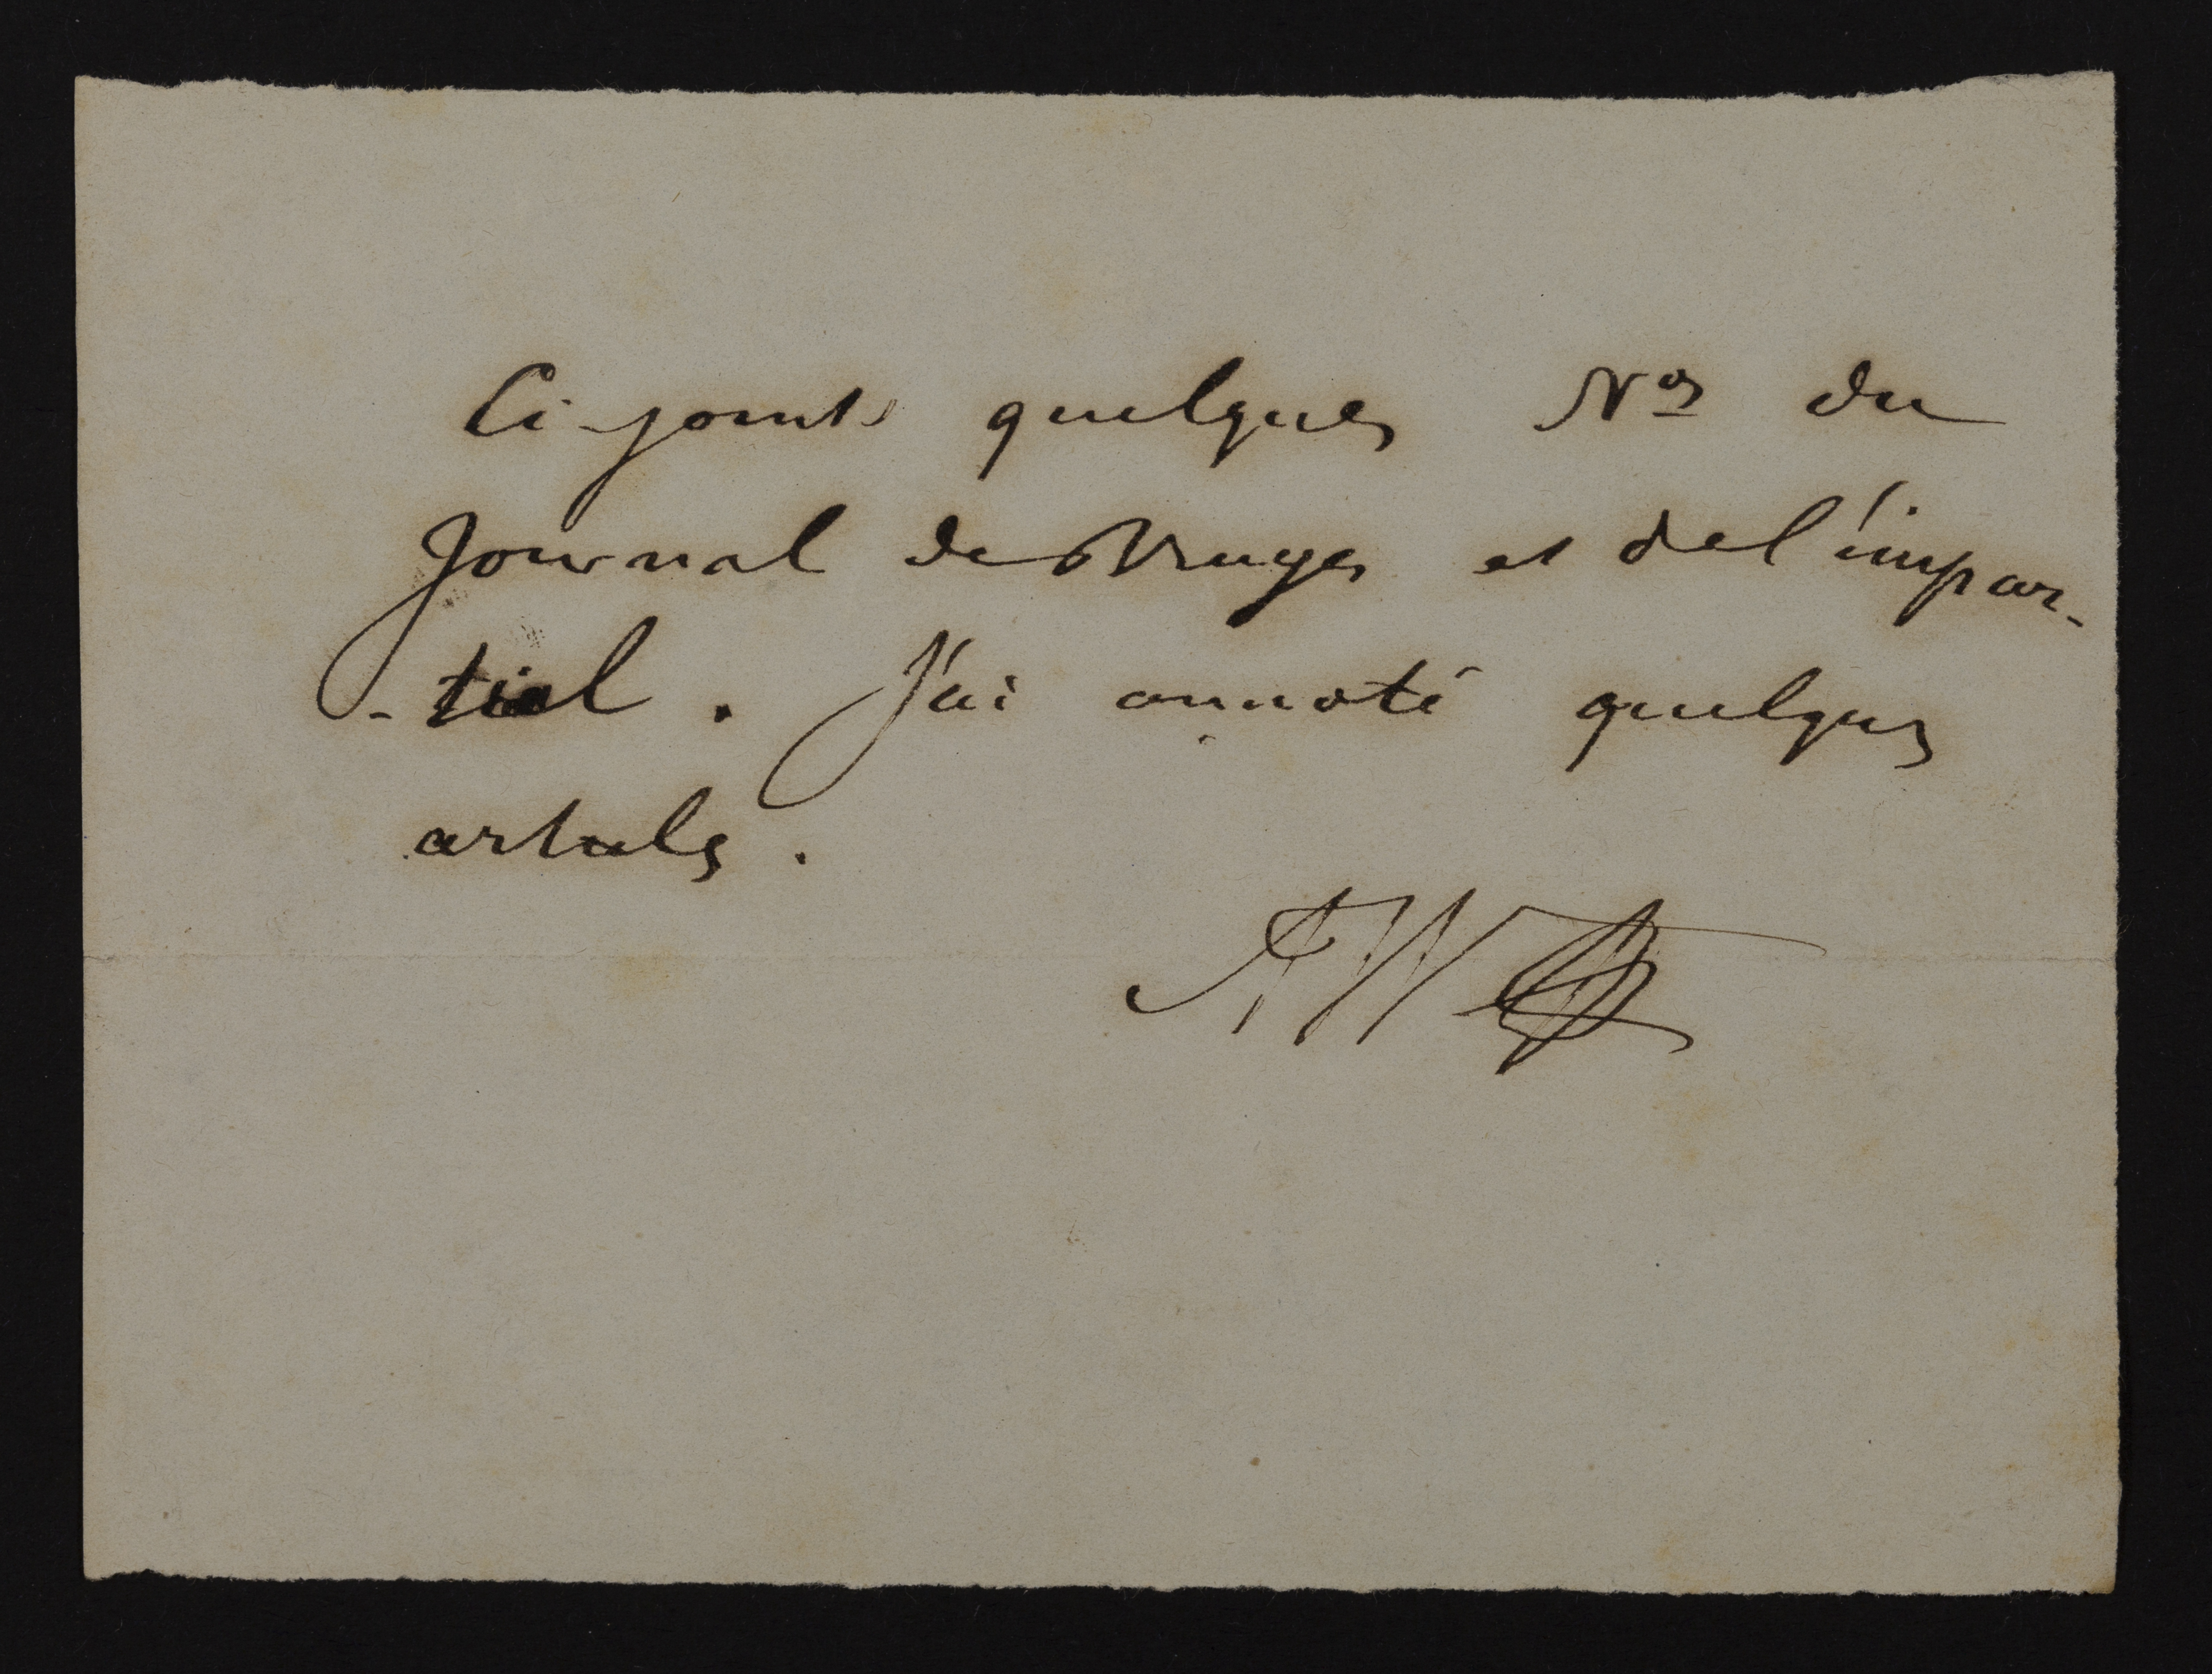 Ci-joints quelques Nos du
Journal de Bruges et de l'impar-
-tial. J'ai annoté quelques
articles.
AW